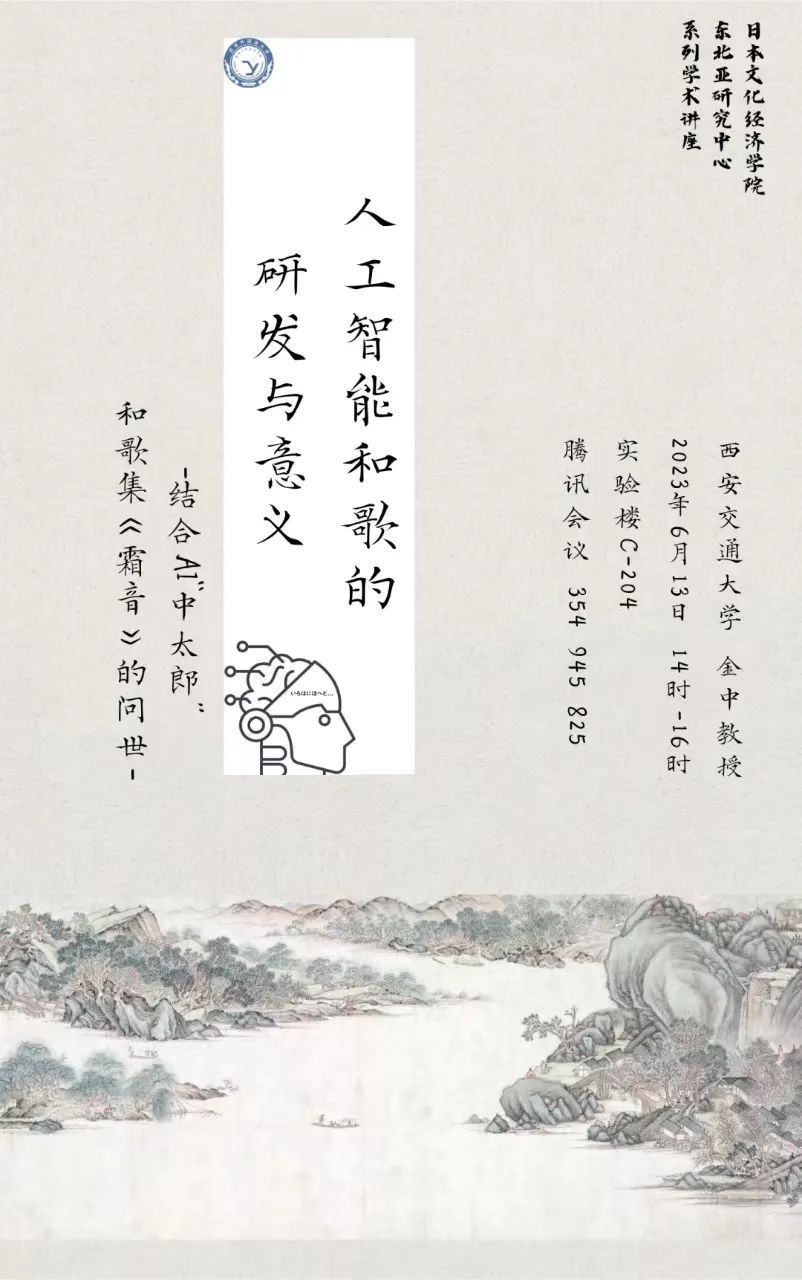 日本文化经济学院
东北亚研究中心
系列学术讲座
西安交通大学 金中教授
2023年6月13日 14时-16时
实验楼C-204
腾讯会议 354 945 825
人工智能和歌的
研发与意义
-结合AI“中太郎”
和歌集《霜音》的问世-
いろはにほへど...